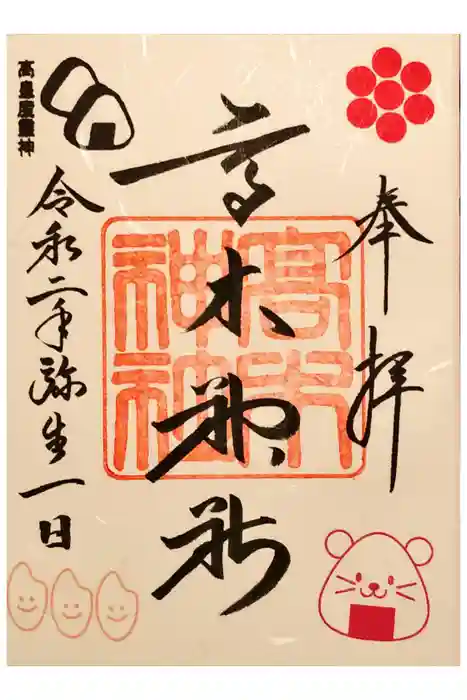 奉拝
高木神社
高木
神社
令和二年弥生一日
高皇産靈神